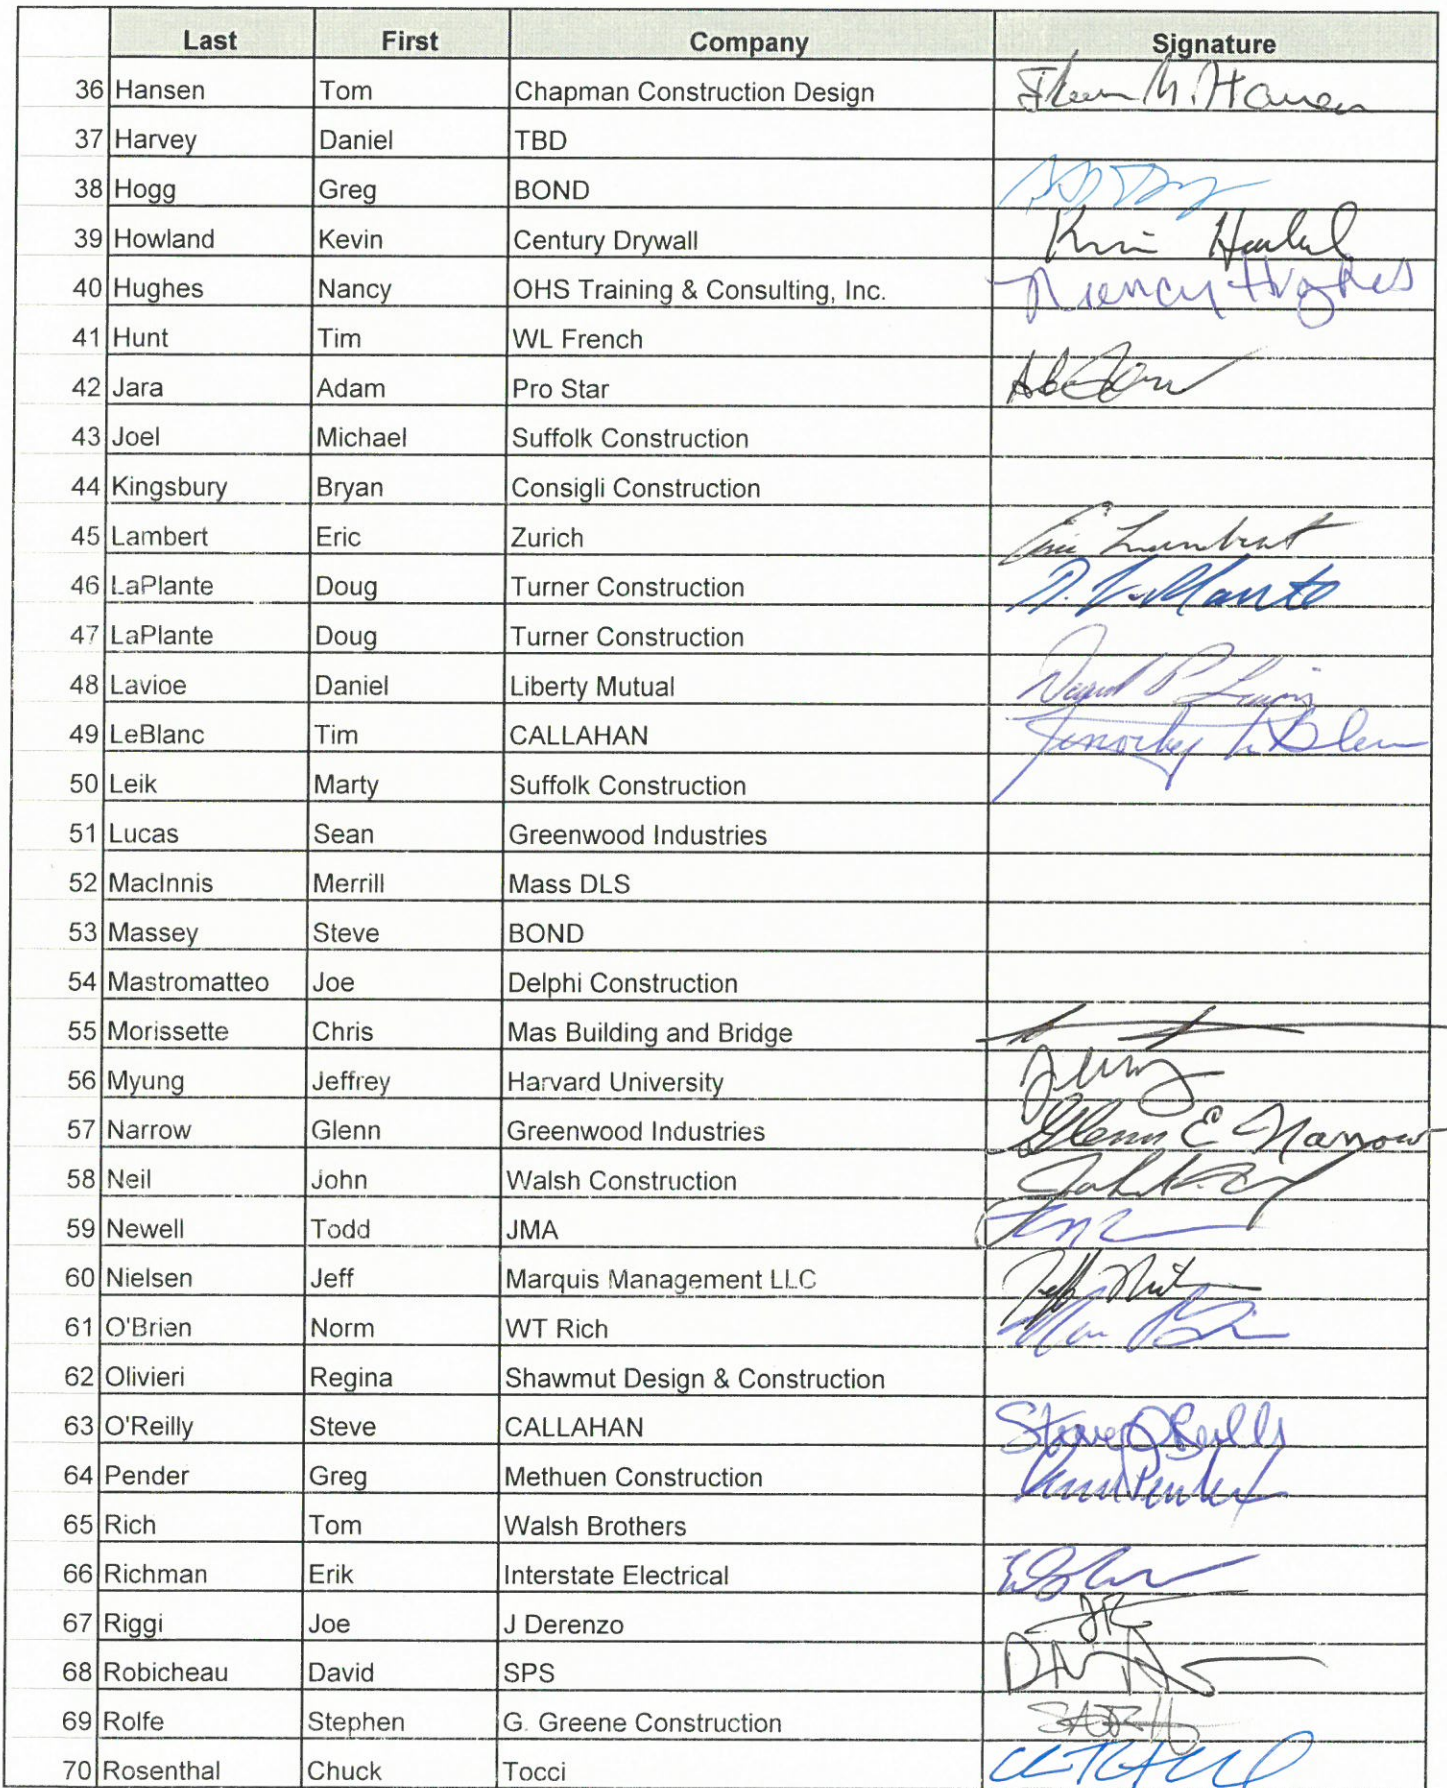 Last First Company Signature
36 Hansen Tom Chapman Construction Design
37 Harvey Daniel TBD
38 Hogg Greg BOND
39 Howland Kevin Century Drywall
40 Hughes Nancy OHS Training & Consulting, Inc. Nancy Hughes
41 Hunt Tim WL French
42 Jara Adam Pro Star
43 Joel Michael Suffolk Construction
44 Kingsbury Bryan Consigli Construction
45 Lambert Eric Zurich Eric Lambert
46 LaPlante Doug Turner Construction D. LaPlante
47 LaPlante Doug Turner Construction
48 Lavioe Daniel Liberty Mutual
49 LeBlanc Tim CALLAHAN
50 Leik Marty Suffolk Construction
51 Lucas Sean Greenwood Industries
52 MacInnis Merrill Mass DLS
53 Massey Steve BOND
54 Mastromatteo Joe Delphi Construction
55 Morissette Chris Mas Building and Bridge
56 Myung Jeffrey Harvard University
57 Narrow Glenn Greenwood Industries Glenn E Narrow
58 Neil John Walsh Construction
59 Newell Todd JMA
60 Nielsen Jeff Marquis Management LLC
61 O'Brien Norm WT Rich
62 Olivieri Regina Shawmut Design & Construction
63 O'Reilly Steve CALLAHAN Steve O'Reilly
64 Pender Greg Methuen Construction
65 Rich Tom Walsh Brothers
66 Richman Erik Interstate Electrical
67 Riggi Joe J Derenzo JR
68 Robicheau David SPS
69 Rolfe Stephen G. Greene Construction
70 Rosenthal Chuck Tocci